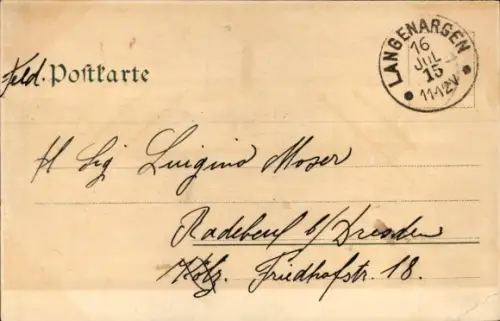 LANGENARGEN
16
JUL
15
11-12V
Feld. Postkarte
Luigina Moser
Radebeul b/Dresden
Kötz. Friedhofstr. 18.